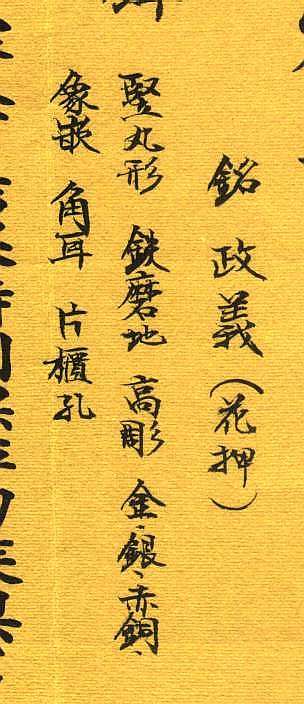 銘 政義（花押）
竪丸形 鉄磨地 高彫 金、銀、赤銅、
象嵌 角耳 片櫃孔